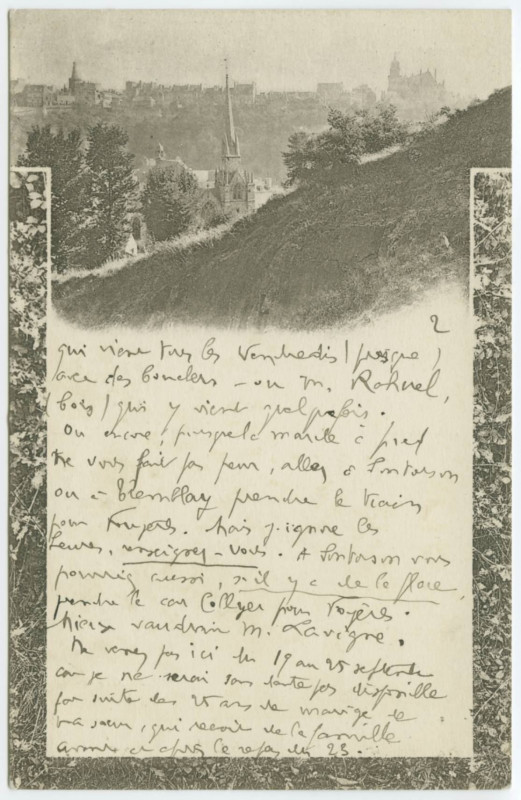 2
qui vient tous les Vendredis (presque)
avec des bouchers - ou M. Rohuel,
(bois) qui y vient quelquefois.
Ou encore, puisque la marche à pied
ne vous fait pas peur, allez à Pontorson
ou à Tremblay prendre le train
pour Fougères. Mais j'ignore les
heures, renseignez-vous. A Pontorson vous
pourriez aussi, s'il y a de la place,
prendre le car Collyer pour Fougères.
Mieux vaudrait M. Lavigne.
Ne venez pas ici du 19 au 25 septembre
car je ne serai sans doute pas disponible
par suite des 25 ans de mariage de
ma soeur, qui reçoit de la famille
avant et après le repas du 23.